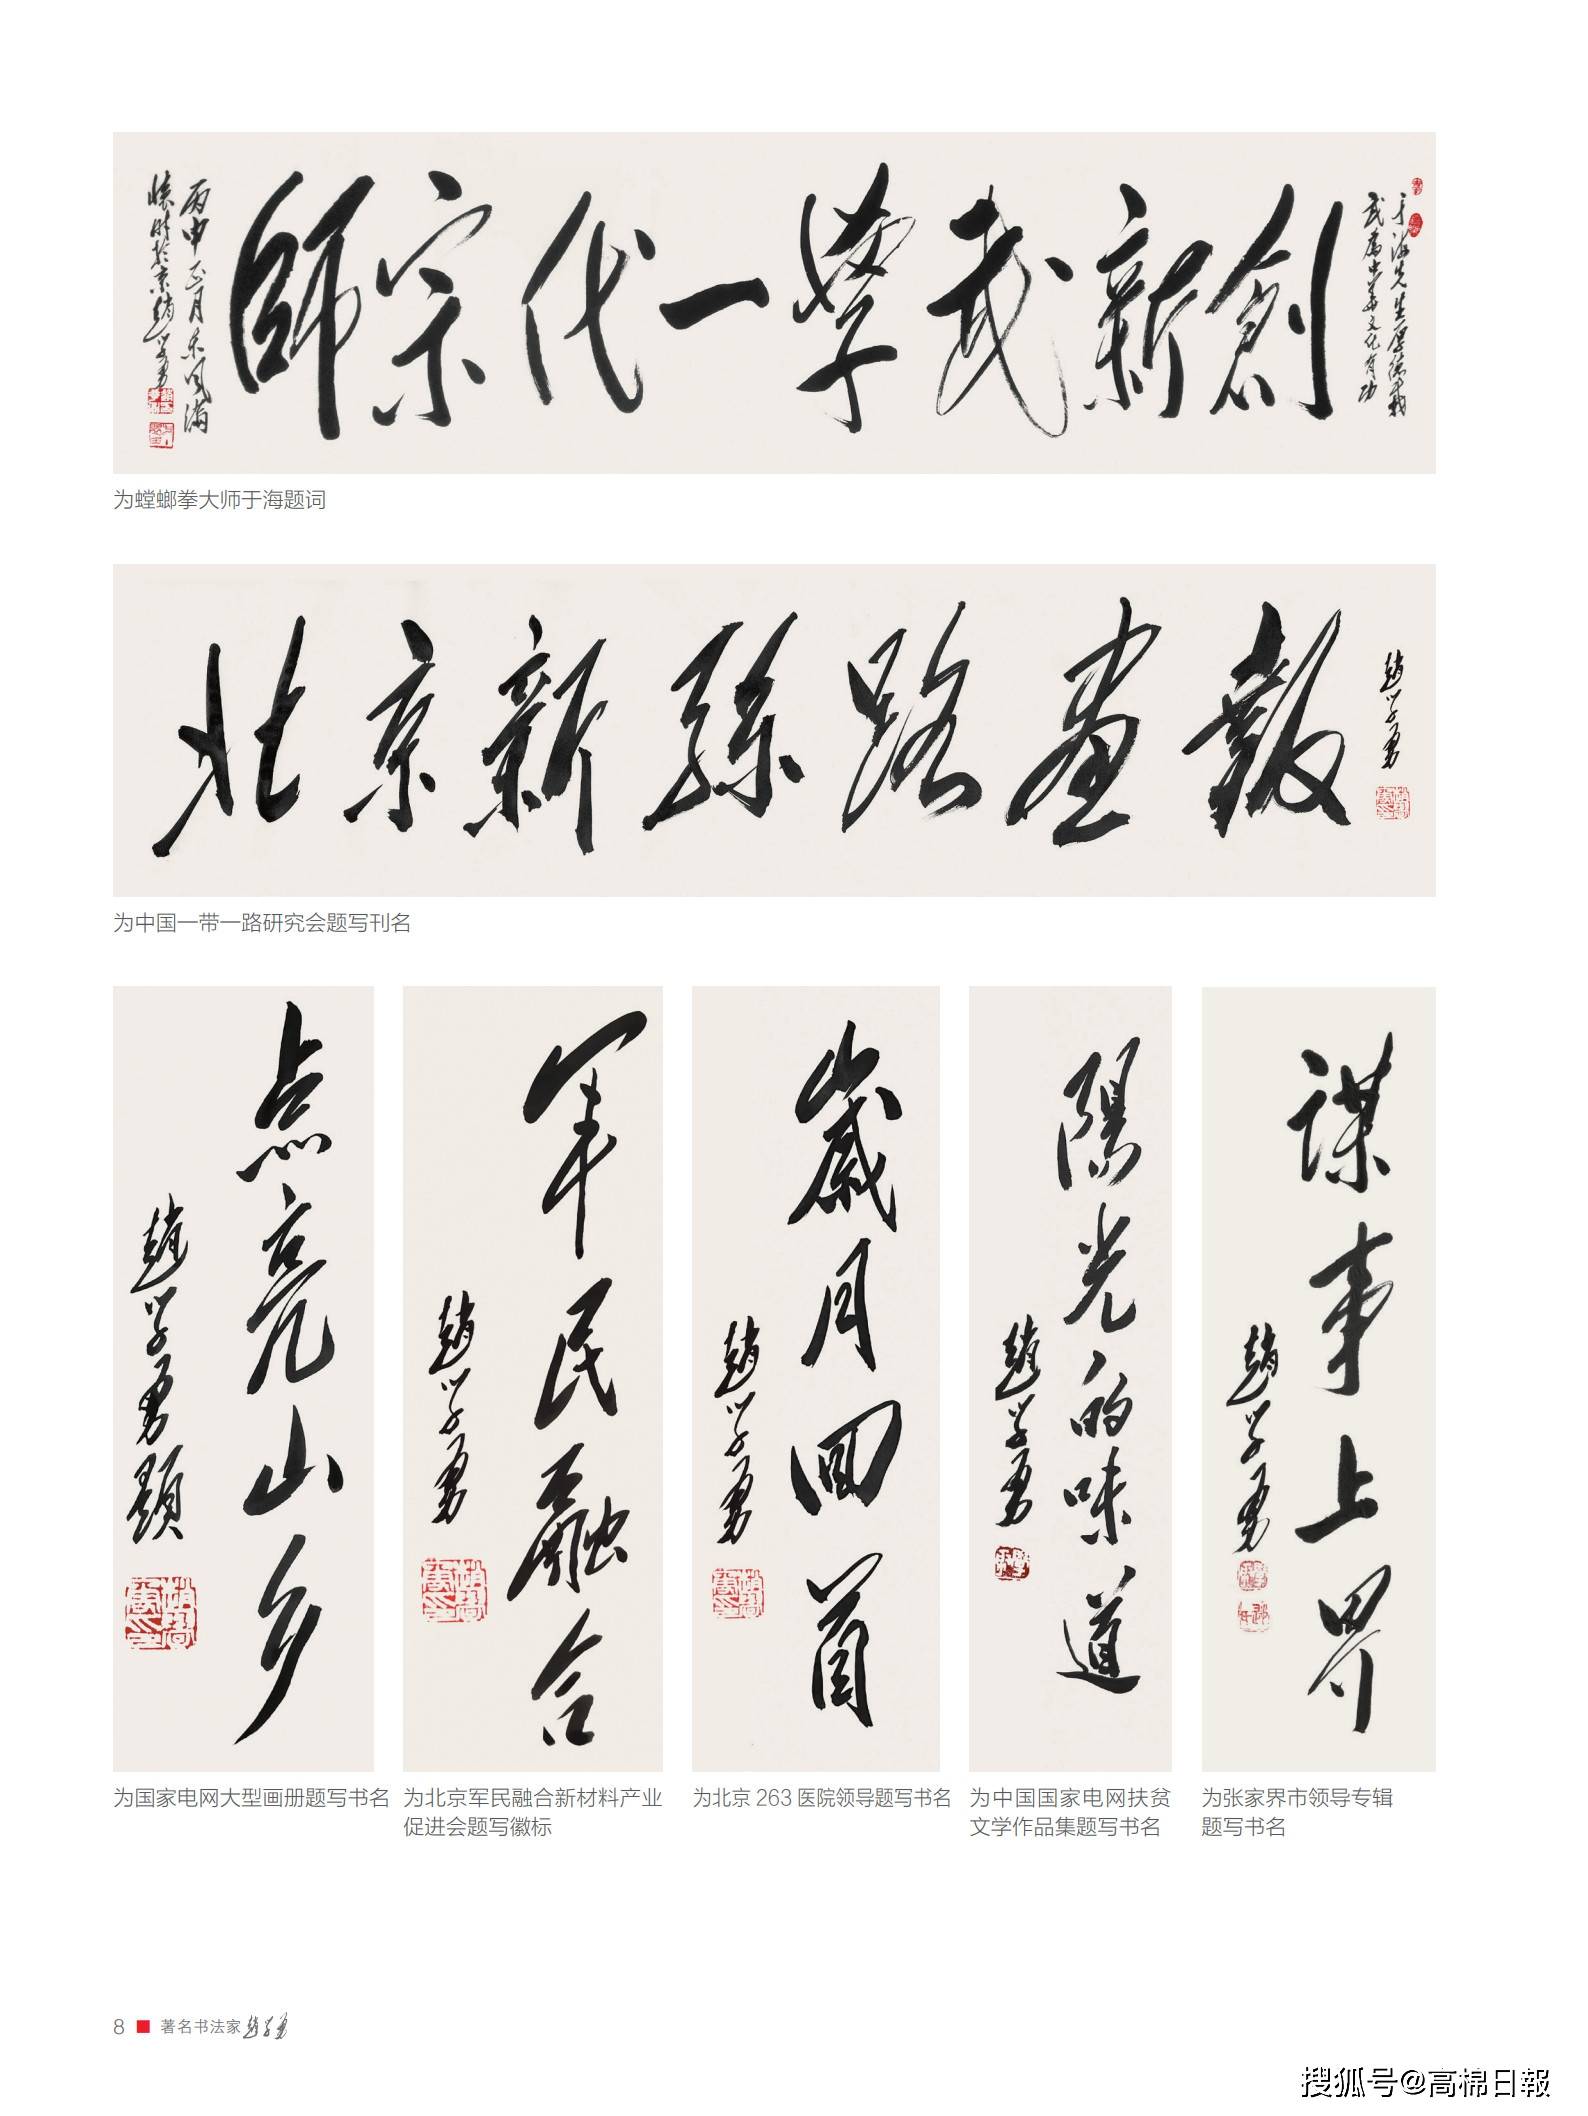 創新武學一代宗師
于海先生厚德載
武為中華文化有功
丙申正月東風滿
懷時於京趙學勇
为螳螂拳大师于海题词
北京新絲路畫報
趙學勇
为中国一带一路研究会题写刊名
点亮山乡
趙學勇題
为国家电网大型画册题写书名
军民融合
趙學勇
为北京军民融合新材料产业
促进会题写徽标
歲月回首
趙學勇
为北京 263 医院领导题写书名
陽光的味道
趙學勇
为中国国家电网扶贫
文学作品集题写书名
谋事上界
趙學勇
为张家界市领导专辑
题写书名
8 著名书法家趙學勇
搜狐号@高棉日報